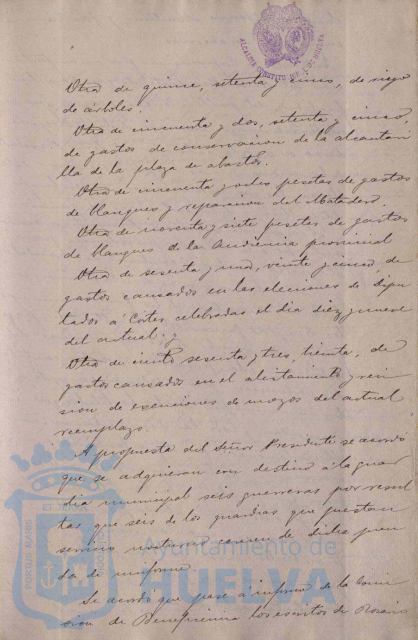 Otra de quince, setenta y cinco, de riego
de árboles.
Otra de cincuenta y dos, setenta y cinco,
de gastos de conservacion de la alcantari
lla de la plaza de abastos.
Otra de cincuenta y ocho pesetas de gastos
de blanqueo y reparacion del Matadero.
Otra de noventa y siete pesetas de gastos
de blanqueo de la Audiencia provincial
Otra de sesenta y una, veinte y cinco de
gastos causados en las elecciones de dipu
tados á Cortes celebradas el dia diez y nueve
del actual: y
Otra de ciento sesenta y tres, treinta, de
gastos causados en el alistamiento y revi
sion de exenciones de mozos del actual
reemplazo.
A propuesta del Señor Presidente se acordó
que se adquieran con destino á la guar
dia municipal seis guerreras por resul
tar que seis de los guardias que prestan
servicio carecen de dicha pren
da de uniforme.
Se acordó que pase á informe de la Comi
sion de Beneficencia los escritos de Rosario
Ayuntamiento de
HUELVA